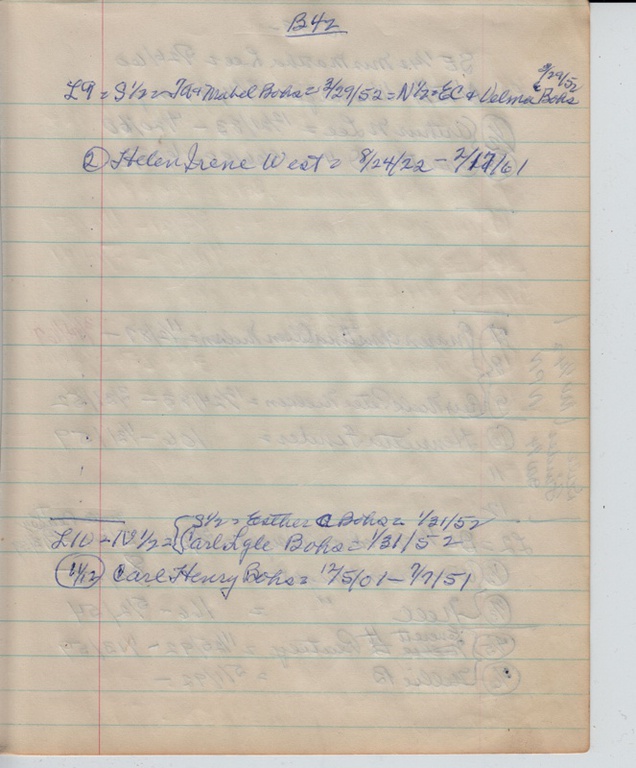 B42
9/29/52
L9 = S 1/2 = TA & Mabel Bohs = 3/29/52 = N 1/2 = EC & Velma Bohs
② Helen Irene West = 8/24/22 - 2/17/61
L10 - N 1/2 = { S 1/2 = Esther C Bohs = 1/31/52
Carl Bohs = 1/31/52
Carl Henry Bohs = 12/5/01 - 7/7/51